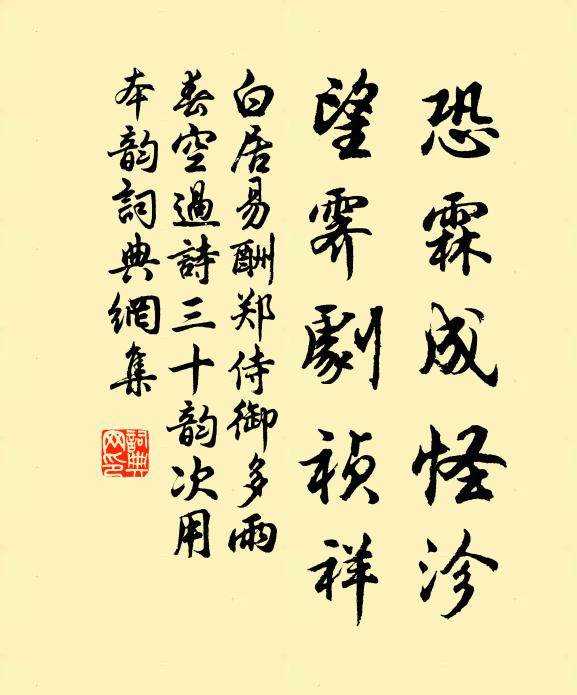 恐霖成怪沴
望霁劇祯祥
白居易酬郑侍御多雨
春空過詩三十韵次用
本韵詞典網集
詞典
网印